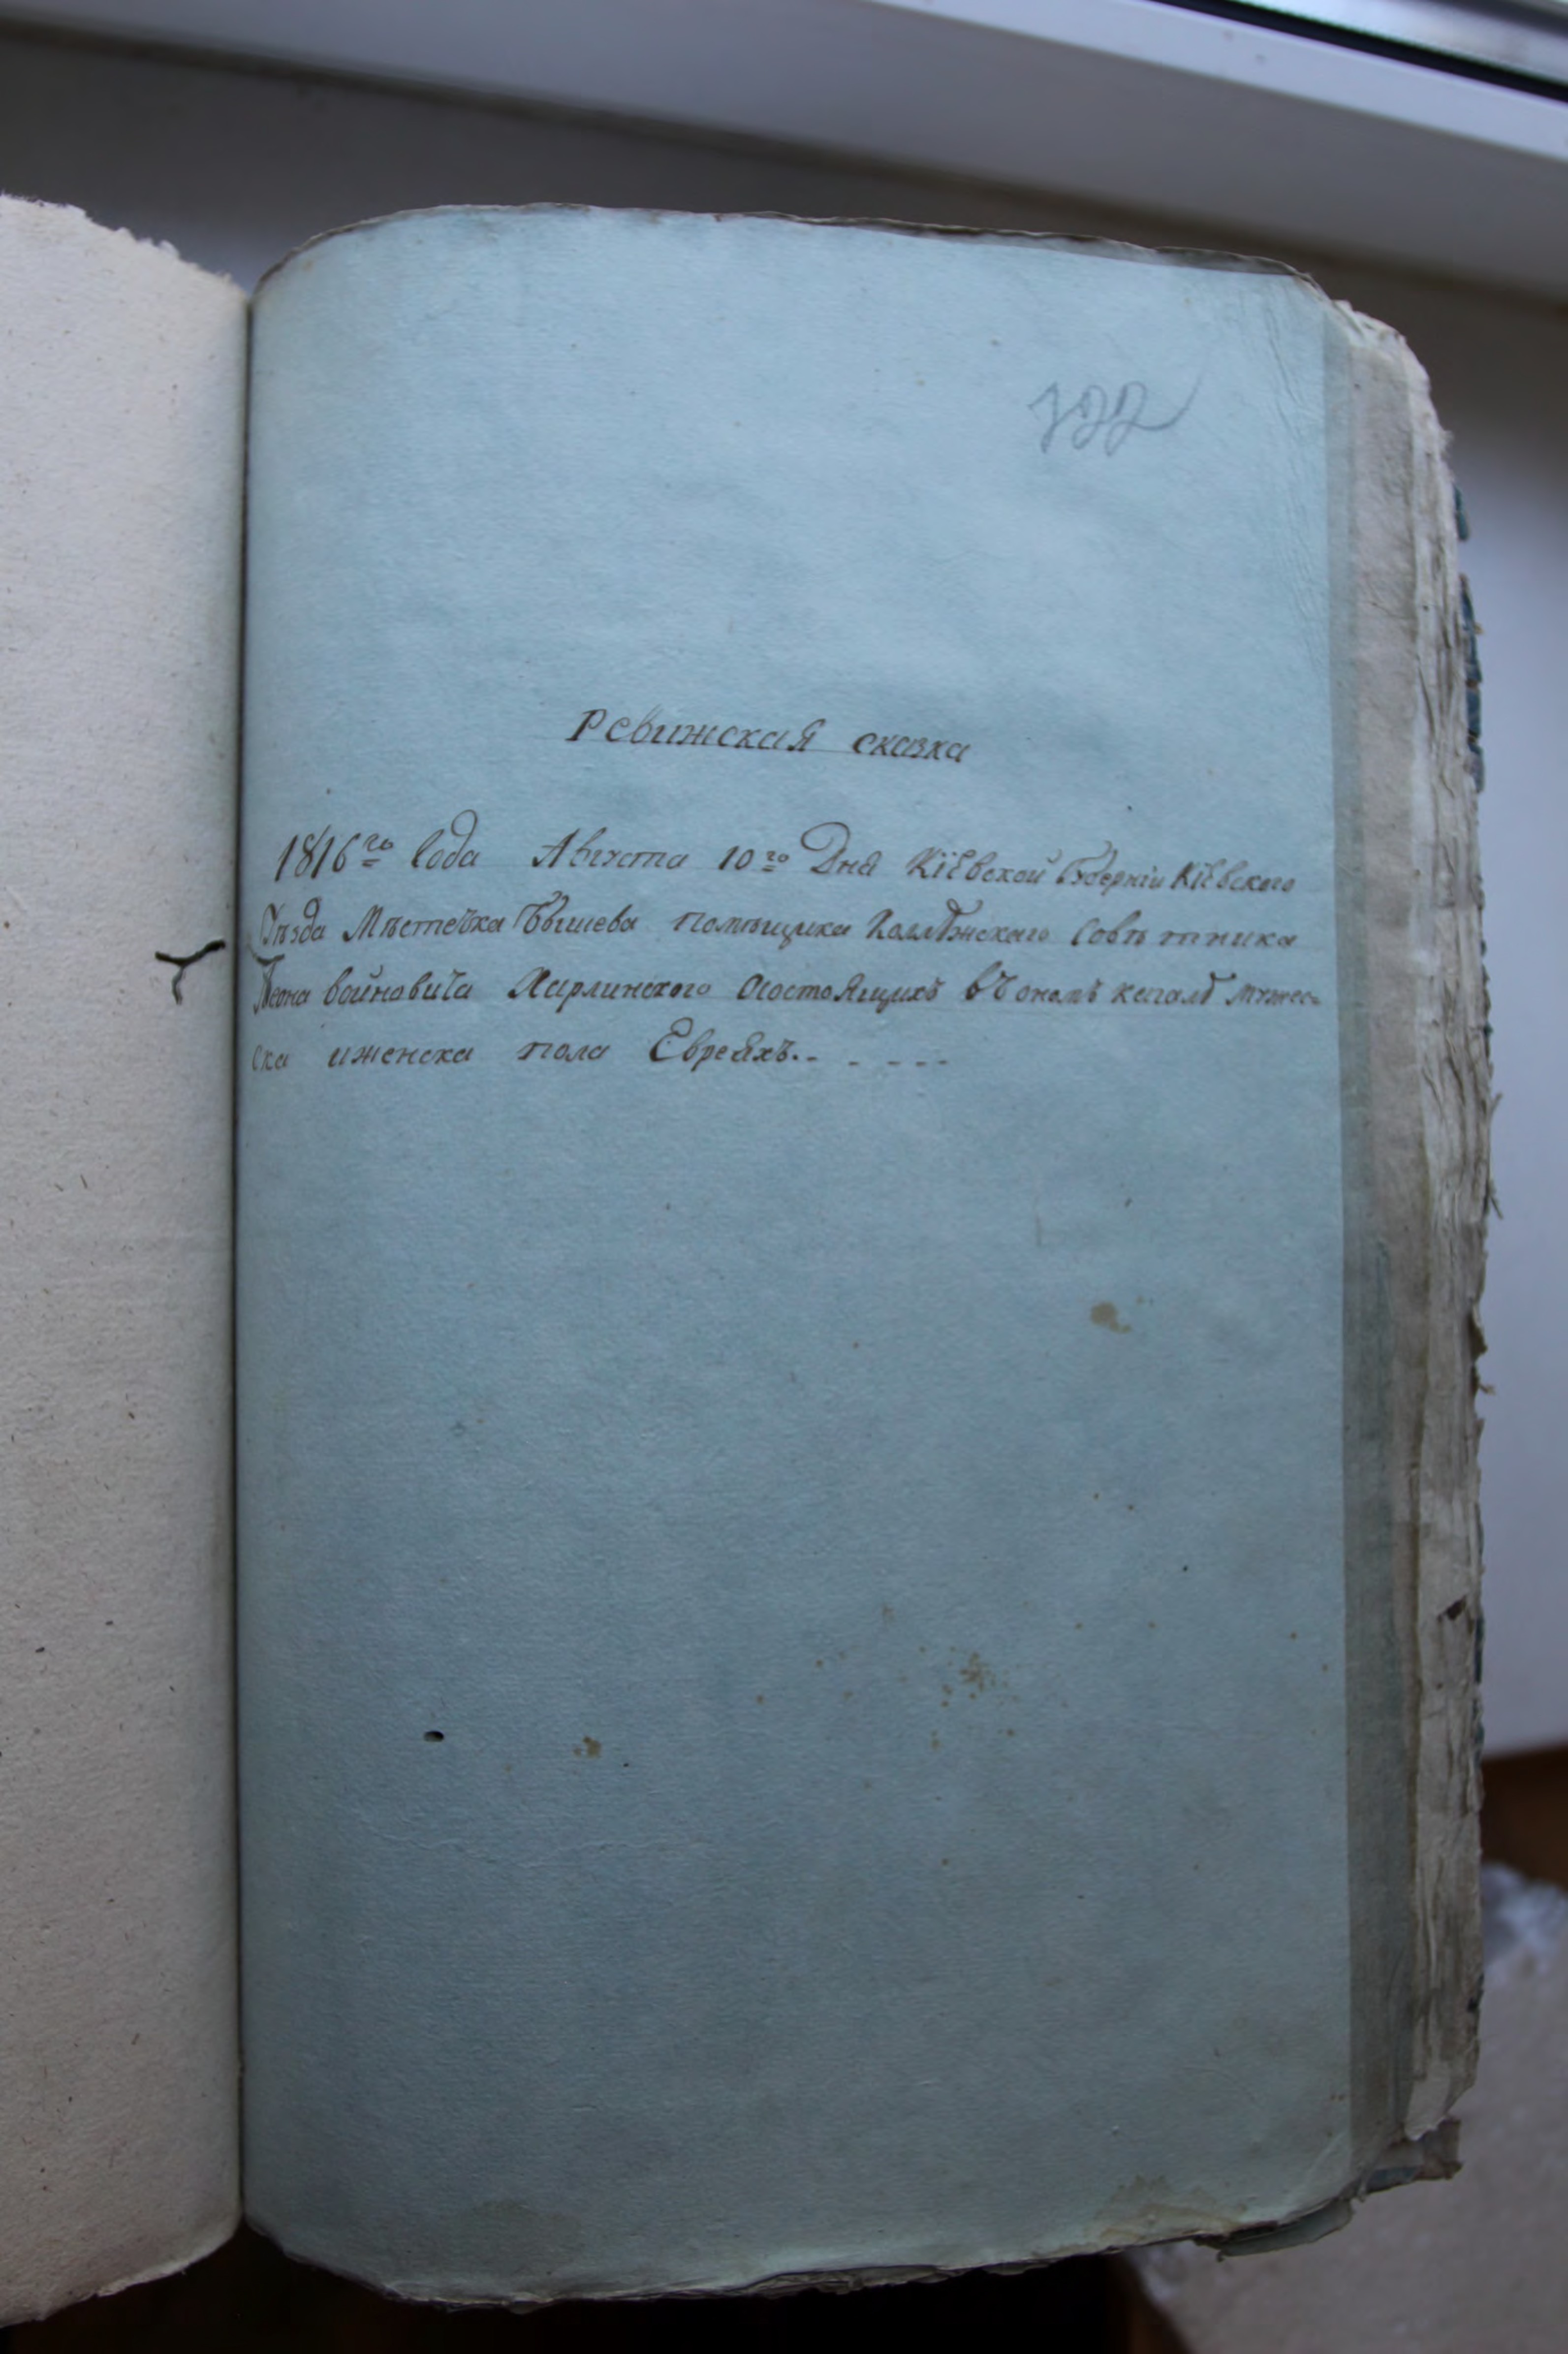 122
Ревижская сказка
1816го года Августа 10го Дня Кіевской Губерніи Кіевского
Уѣзда Мѣстечка Бышева помѣщика Коллѣжскаго Совѣтника
Леона войновича Харлинского осостоящихъ въ ономъ кагалѣ мужес-
ска иженска пола Евреяхъ.- - - - -